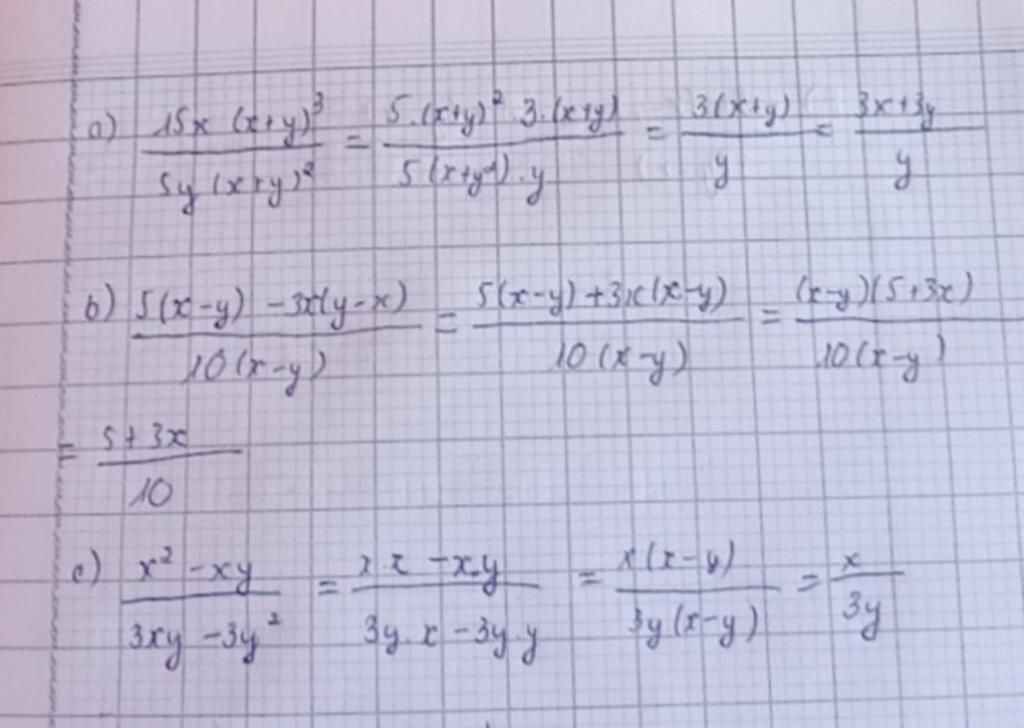 a) \frac{15x (x+y)^3}{5y (x+y)^2} = \frac{5.(x+y)^2 3.(x+y)}{5(x+y^2).y} = \frac{3(x+y)}{y} = \frac{3x+3y}{y}
b) \frac{5(x-y) -3x(y-x)}{10(x-y)} = \frac{5(x-y)+3x(x-y)}{10(x-y)} = \frac{(x-y)(5+3x)}{10(x-y)}
= \frac{5+3x}{10}
c) \frac{x^2-xy}{3xy-3y^2} = \frac{x.x-x.y}{3y.x-3y.y} = \frac{x(x-y)}{3y(x-y)} = \frac{x}{3y}